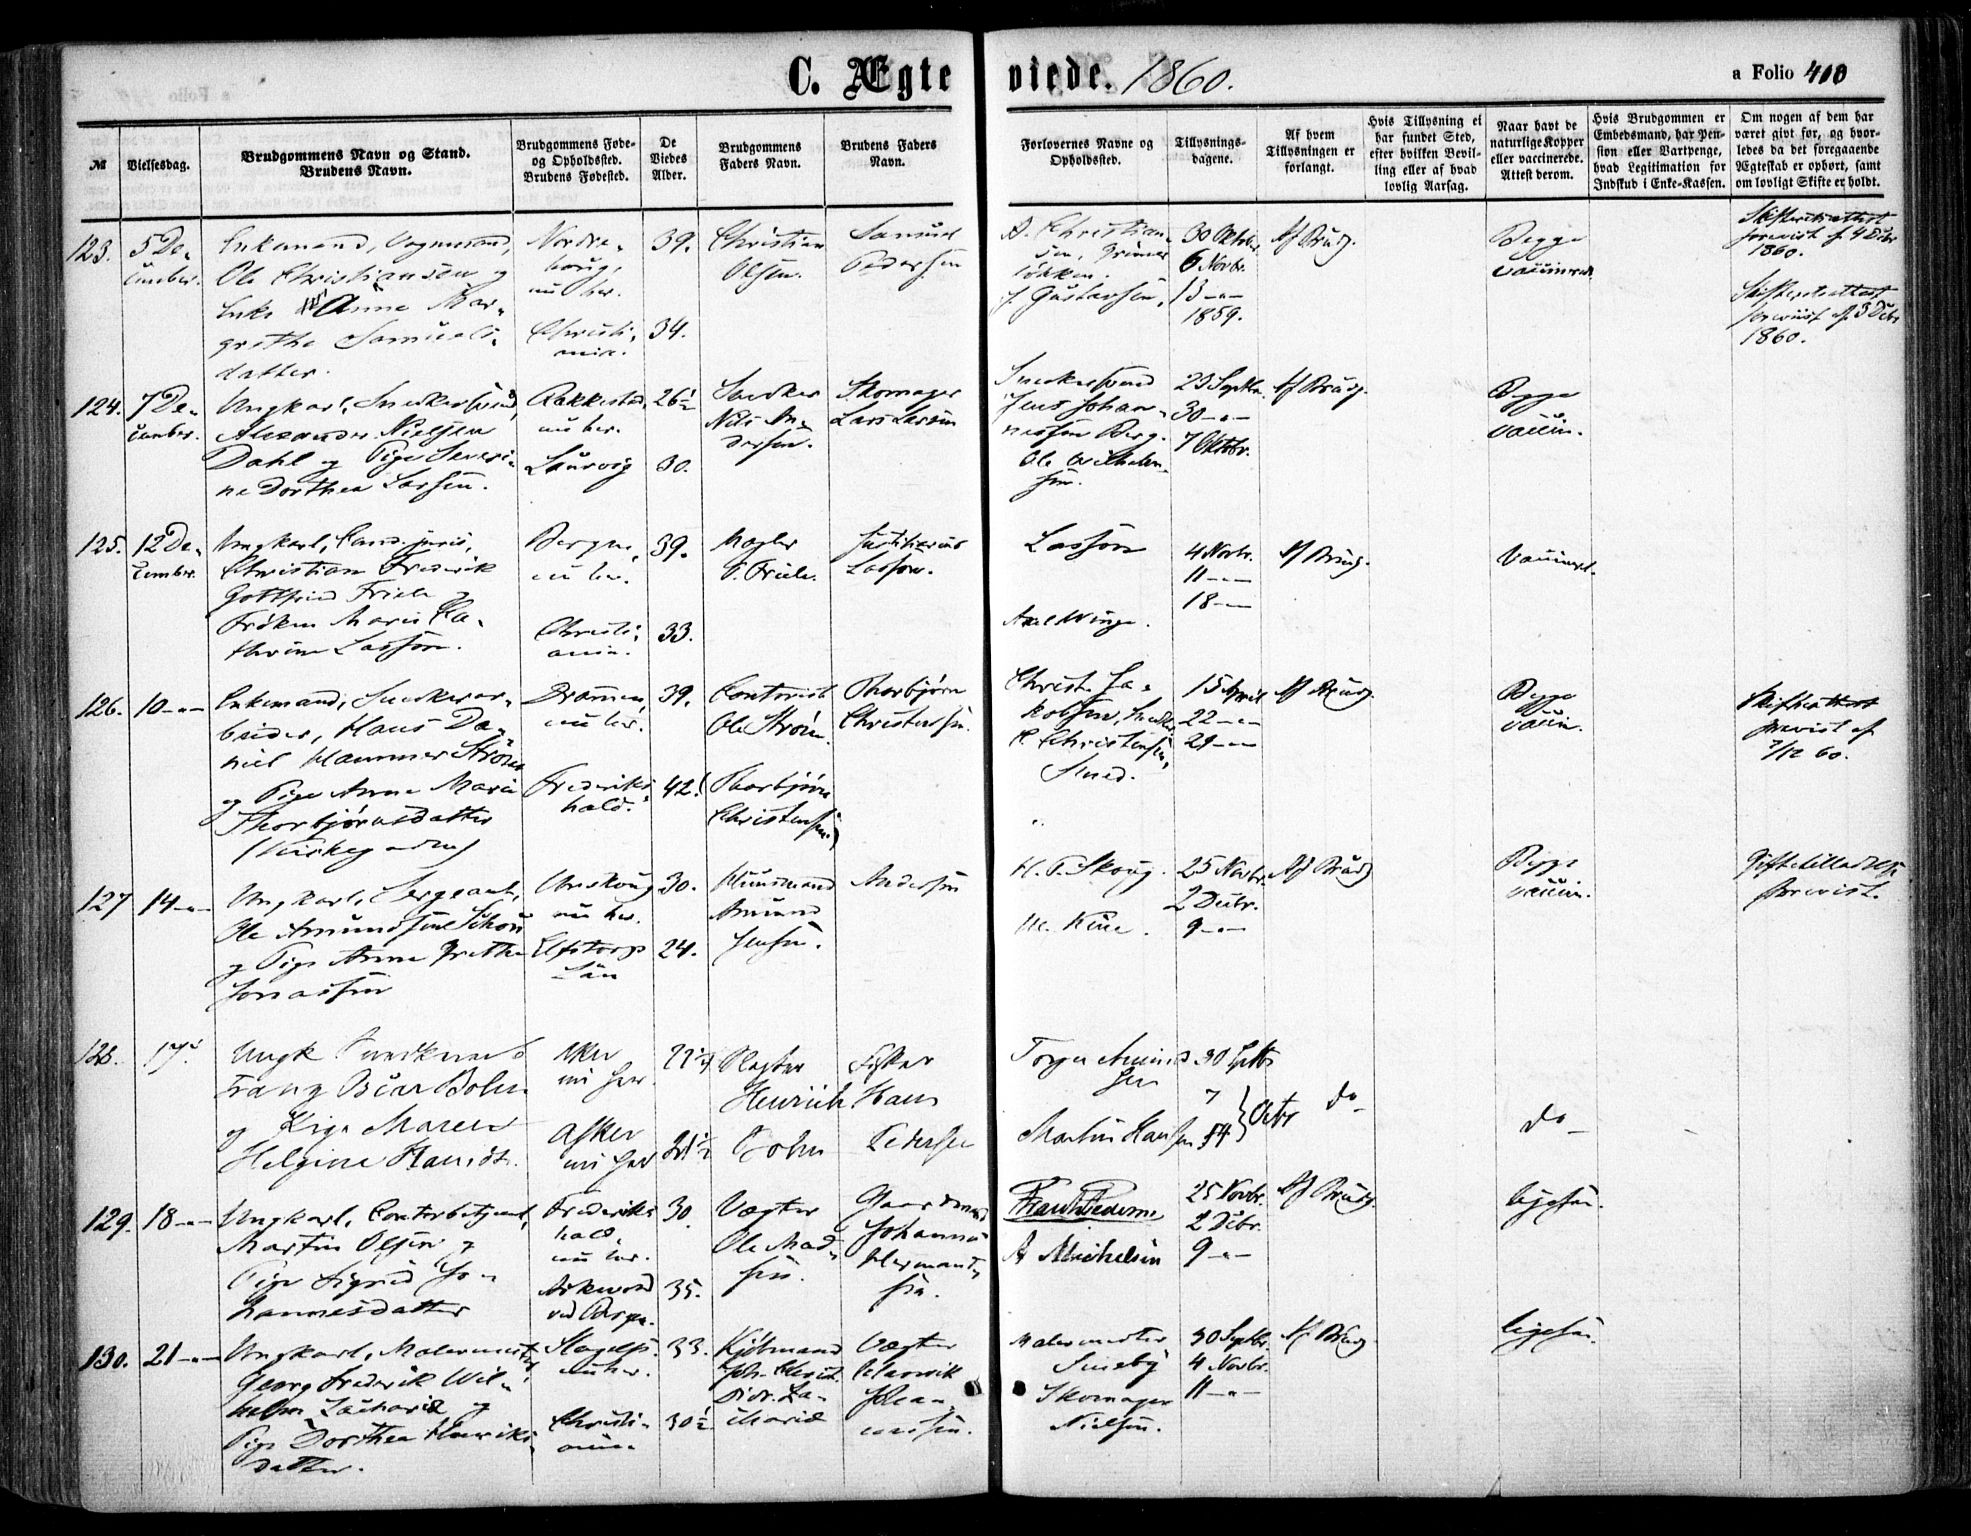 C. Ægteviede. 1860.
a Folio 410
№
Vielsesdag.
Brudgommens Navn og Stand.
Brudens Navn.
Brudgommens Føde-
og Opholdssted.
Brudens Fødested.
De
Viedes
Alder.
Brudgommens
Faders Navn.
Brudens Faders
Navn.
Forlovernes Navne og
Opholdssted.
Tillysnings-
dagene.
Af hvem
Tillysningen er
forlangt.
Hvis Tillysning ei
har fundet Sted,
efter hvilken Bevil-
ling eller af hvad
lovlig Aarsag.
Naar havt de
naturlige Kopper
eller vaccinerede.
Attest derom.
Hvis Brudgommen er
Embedsmand, har Pen-
sion eller Vartpenge,
hvad Legitimation for
Indskud i Enke-Kassen.
Om nogen af dem har
været givt før, og hvor-
ledes da det foregaaende
Ægteskab er ophørt, samt
om lovligt Skifte er holdt.
123.
5 De-
cember.
Enkemand, Vognmand,
Ole Christiansen og
Enke Anne Mar-
grethe Samuels-
datter.
Nordre-
houg,
nu her.
Christi-
ania.
39.
34.
Christian
Olsen.
Samuel
Pedersen
A. Christian-
sen, Grüner
løkken.
J. Gustavsen.
30 Oktbr.
6 Novbr.
13 - " -
1859.
Af Brudg.
Begge
vaccinerede
Skifteretsattest
forevist af 4 Decbr
1860.
Skifteretsattest
forevist af 3 Decbr
1860.
124.
7 De-
cember.
Ungkarl, Snedkersvend,
Alexander Nielsen
Dahl og Pige Severi-
ne Dorthea Larsen.
Rakkestad
nu her.
Laurvig
26½
30.
Snedker
Nils An-
dersen.
Skomager
Lars Larsen
Snedkersvend
Jens Johan-
nessen Berg.
Ole Wilhelm-
sen.
23 Septbr.
30 - " -
7 Oktbr.
Af Brudg.
Begge
vaccin.
125.
12 De-
cember.
Ungkarl, Cand. juris,
Christian Frederik
Gottfried Friele og
Frøken Marie Ca-
thrine Lasson.
Bergen,
nu her.
Christi-
ania.
39.
33.
Mægler
Friele.
Justitiarius
Lasson.
Lasson
Axel Winge.
4 Novbr.
11 - " -
18 - " -
Af Brudg.
Vaccineret.
126.
10 - " -
Enkemand, Snedkerar-
beider, Hans Da-
niel Hammer Strøm
og Pige Anne Marie
Thorbjørnsdatter
Drammen,
nu her.
Frederiks-
hald.
39.
42.
Contorist
Ole Strøm.
Thorbjørn
Christensen
Thorbjørn
Christensen.
Christ. Ja-
kobsen, Snedker
C. Christensen,
Smed.
15 April
22 - " -
29 - " -
Af Brudg.
Begge
vaccin.
Skifteattest
forevist af
7/12 60.
127
14 - " -
Ungkarl, Sergeant,
Ole Amundsen
og Pige Anne Grethe
Jonassen
Urskoug
nu her.
Elfsborgs
Län
30.
24.
Huusmand
Amund
Jensen.
Andersen
H. P. Skoug.
25 Novbr.
2 Decbr.
9 - " -
Af Brudg
Begge
vaccin.
Giftetilladelse
forevist.
128.
17.
Ungk
Frantz Oscar Bohm
og Pige Maren
Helgine Hansdt.
Aker
nu her
Asker
nu her
21½
Heinrich
Bohm
Hans
Pedersen
Torger Amund-
sen
Martin Hansen
30 Septbr
7
14
} Octbr
do
do
129.
18 - " -
Ungkarl, Contorbetjent,
Martin Olsen og
Pige Sigrid Jo-
hannesdatter
Frederiks-
hald,
nu her.
Askevold
ved Bergen.
30.
35.
Vægter
Ole Mad-
sen.
Gaardmand
Johannes
Hermand-
sen.
A Michelsen
25 Novbr.
2 Decbr.
9 - " -
Af Brudg.
ligesaa.
130.
21 - " -
Ungkarl, Malermester
Georg Frederik Wil-
helm Zachariæ og
Pige Dorthea Henriks-
datter.
Slagelse,
nu her.
Christi-
ania
33.
30½
Kjøbmand
Joh. Christ.
Fidr. Za-
chariæ
Vægter
Henrik
Johan-
nessen.
Malermester
Smeby
Skomager
Nielsen.
30 Septbr.
4 Novbr.
11 - " -
Af Brudg.
ligesaa.